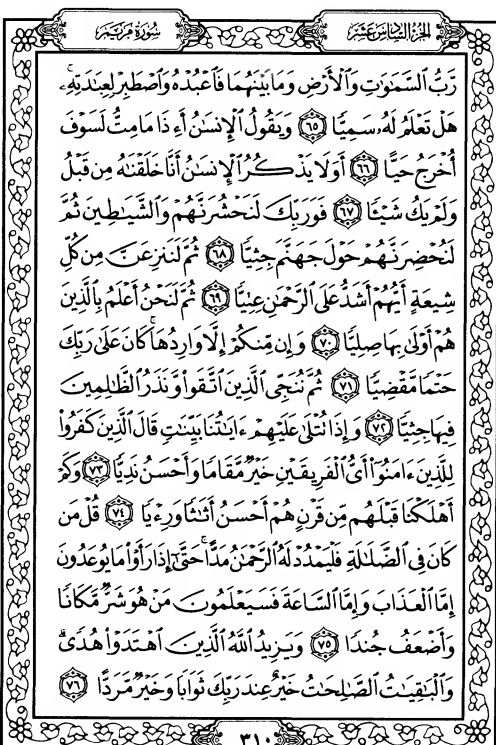 الجزء السادس عشر
سورة مريم
رَّبُّ السَّمَٰوَٰتِ وَالْأَرْضِ وَمَا بَيْنَهُمَا فَاعْبُدْهُ وَاصْطَبِرْ لِعِبَٰدَتِهِۦۚ
هَلْ تَعْلَمُ لَهُۥ سَمِيًّا ٦٥ وَيَقُولُ الْإِنسَٰنُ أَءِذَا مَا مِتُّ لَسَوْفَ
أُخْرَجُ حَيًّا ٦٦ أَوَلَا يَذْكُرُ الْإِنسَٰنُ أَنَّا خَلَقْنَٰهُ مِن قَبْلُ
وَلَمْ يَكُ شَيْـًٔا ٦٧ فَوَرَبِّكَ لَنَحْشُرَنَّهُمْ وَالشَّيَٰطِينَ ثُمَّ
لَنُحْضِرَنَّهُمْ حَوْلَ جَهَنَّمَ جِثِيًّا ٦٨ ثُمَّ لَنَنزِعَنَّ مِن كُلِّ
شِيعَةٍ أَيُّهُمْ أَشَدُّ عَلَى الرَّحْمَٰنِ عِتِيًّا ٦٩ ثُمَّ لَنَحْنُ أَعْلَمُ بِالَّذِينَ
هُمْ أَوْلَىٰ بِهَا صِلِيًّا ٧٠ وَإِن مِّنكُمْ إِلَّا وَارِدُهَاۚ كَانَ عَلَىٰ رَبِّكَ
حَتْمًا مَّقْضِيًّا ٧١ ثُمَّ نُنَجِّى الَّذِينَ اتَّقَوا وَّنَذَرُ الظَّٰلِمِينَ
فِيهَا جِثِيًّا ٧٢ وَإِذَا تُتْلَىٰ عَلَيْهِمْ ءَايَٰتُنَا بَيِّنَٰتٍ قَالَ الَّذِينَ كَفَرُوا۟
لِلَّذِينَ ءَامَنُوٓا۟ أَىُّ الْفَرِيقَيْنِ خَيْرٌ مَّقَامًا وَأَحْسَنُ نَدِيًّا ٧٣ وَكَمْ
أَهْلَكْنَا قَبْلَهُم مِّن قَرْنٍ هُمْ أَحْسَنُ أَثَٰثًا وَرِءْيًا ٧٤ قُلْ مَن
كَانَ فِى الضَّلَٰلَةِ فَلْيَمْدُدْ لَهُ الرَّحْمَٰنُ مَدًّاۚ حَتَّىٰٓ إِذَا رَأَوْا۟ مَا يُوعَدُونَ
إِمَّا الْعَذَابَ وَإِمَّا السَّاعَةَ فَسَيَعْلَمُونَ مَنْ هُوَ شَرٌّ مَّكَانًا
وَأَضْعَفُ جُندًا ٧٥ وَيَزِيدُ اللَّهُ الَّذِينَ اهْتَدَوْا۟ هُدًىۗ
وَالْبَٰقِيَٰتُ الصَّٰلِحَٰتُ خَيْرٌ عِندَ رَبِّكَ ثَوَابًا وَخَيْرٌ مَّرَدًّا ٧٦
٣١٠